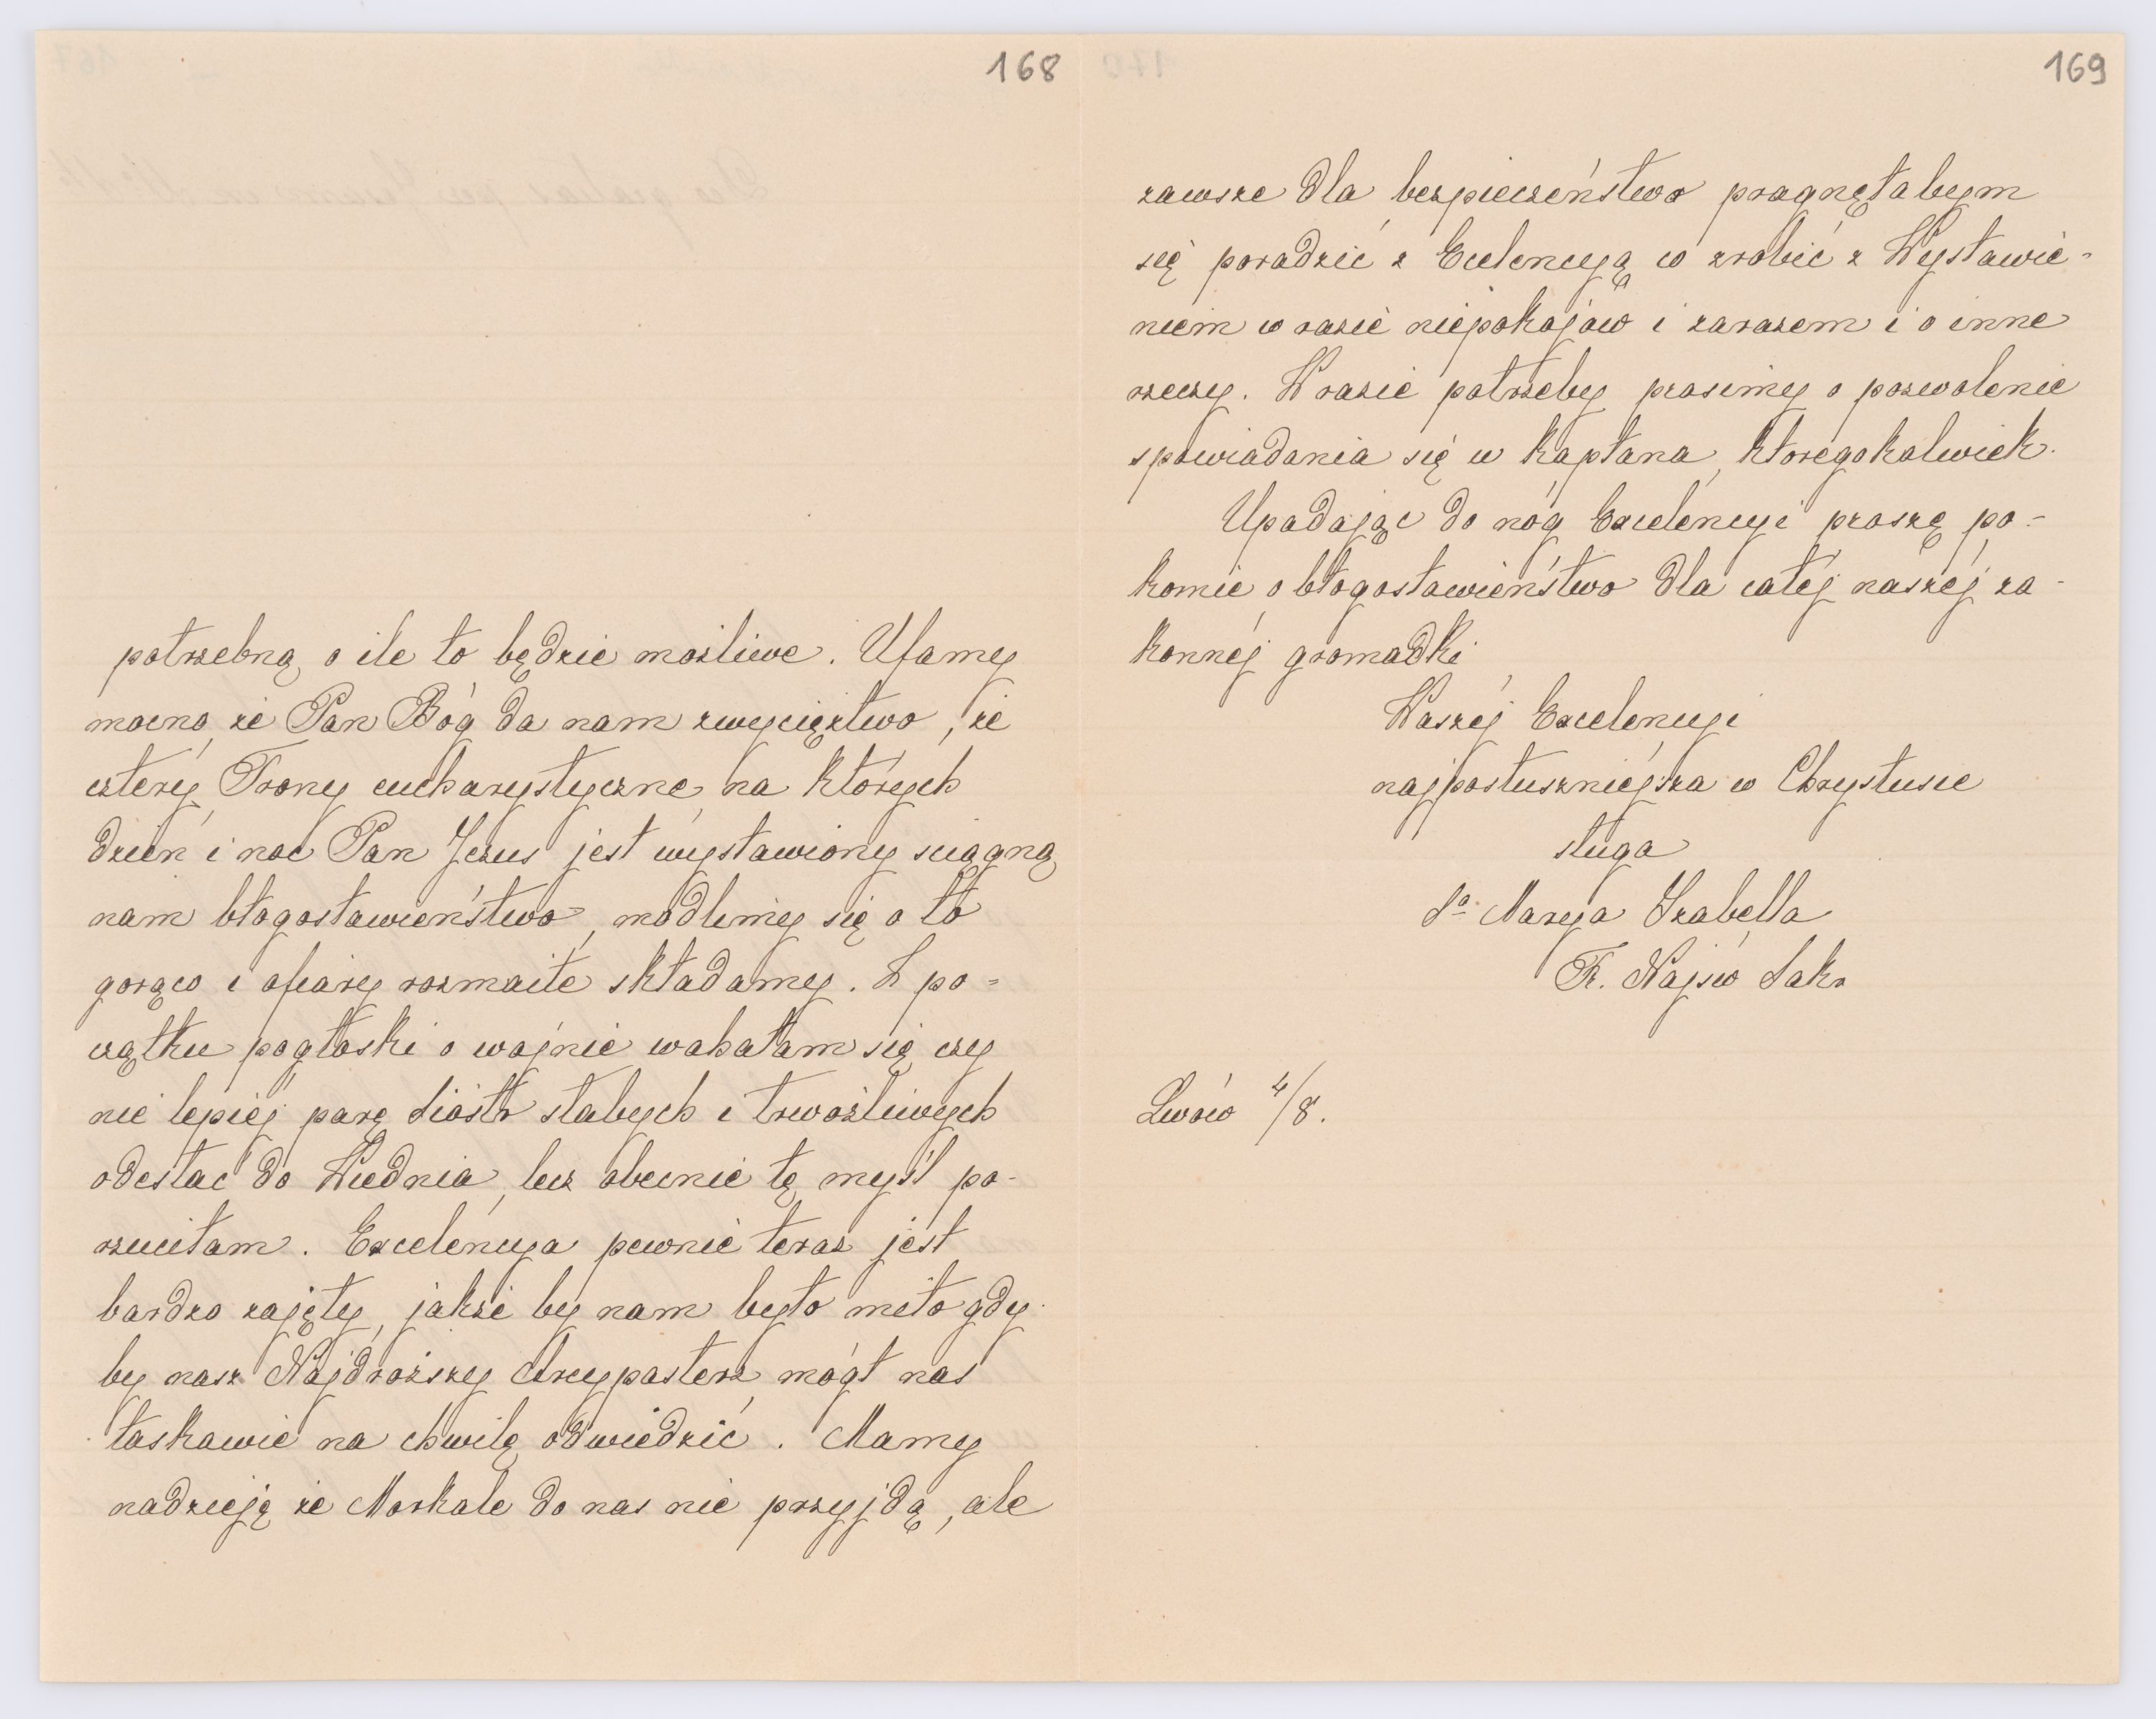 168
potrzebną, o ile to będzie możliwe. Ufamy
mocno, że Pan Bóg da nam zwycięztwo, że
cztery Trony eucharystyczne, na których
dzień i noc Pan Jezus jest wystawiony sciągną
nam błogosławieństwo, modlimy się o to
gorąco i ofiary rozmaite składamy. Z po=
czątku pogłoski o wojnie wahałam się, czy
nie lepiej parę Sióstr słabych i trwożliwych
odesłać do Wiednia, lecz obecnie tę myśl po-
rzuciłam. Excelencya pewnie teraz jest
bardzo zajęty, jakże by nam było miło gdy
by nasz Najdroższy Arcypasterz, mógł nas
łaskawie na chwilę odwiedzić. Mamy
nadzieję że Moskale do nas nie przyjdą, ale
169
zawsze dla bezpieczeństwa pragnęłabym
się poradzić z Excelencyą co zrobić z Wystawie-
niem w razie niepokojów i zarazem i o inne
rzeczy. W razie potrzeby prosimy o pozwolenie
spowiadania się u kapłana, któregokolwiek.
Upadając do nóg Excelencyi proszę po-
kornie o błogosławieństwo dla całéj naszéj za-
konnéj gromadki
Waszéj Excelencyi
najposłuszniejsza w Chrystusie
sługa
Sa. Marya Izabella
Fr. Najśw Sakr
Lwów 4/8.